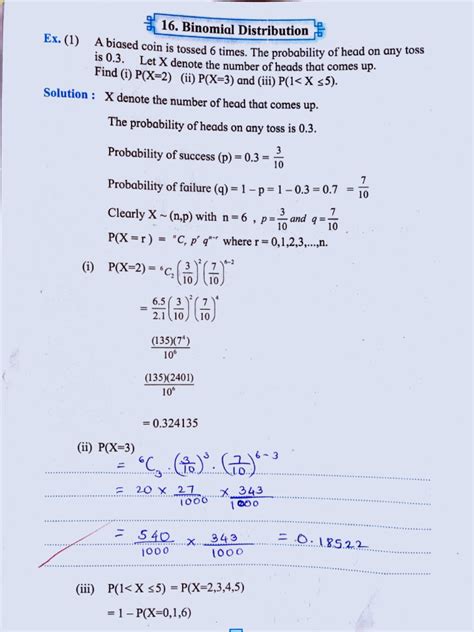 16. Binomial Distribution
Ex. (1) A biased coin is tossed 6 times. The probability of head on any toss
is 0.3. Let X denote the number of heads that comes up.
Find (i) P(X=2) (ii) P(X=3) and (iii) P(1< X ≤5).
Solution : X denote the number of head that comes up.
The probability of heads on any toss is 0.3.
Probability of success (p) = 0.3 = 3/10
Probability of failure (q) = 1 – p = 1 – 0.3 = 0.7 = 7/10
Clearly X ~ (n,p) with n = 6 , p = 3/10 and q = 7/10
P(X = r ) = ⁿCᵣ pʳ qⁿ⁻ʳ where r = 0,1,2,3,...,n.
(i) P(X=2) = ⁶C₂ (3/10)² (7/10)⁶⁻²
= 6.5/2.1 (3/10)² (7/10)⁴
(135)(7⁴)/10⁶
(135)(2401)/10⁶
= 0.324135
(ii) P(X=3)
= ⁶C₃ . (3/10)³ . (7/10)⁶⁻³
= 20 × 27/1000 × 343/1000
= 540/1000 × 343/1000 = 0.18522
(iii) P(1< X ≤5) = P(X=2,3,4,5)
= 1 – P(X=0,1,6)